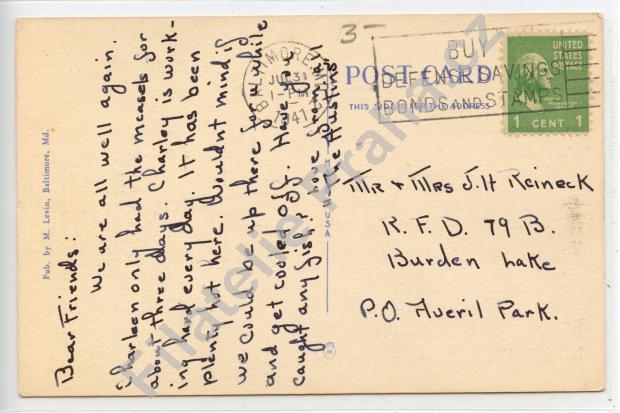 Pub. by M. Levin, Baltimore, Md.
Dear Friends:
We are all well again.
Charleen only had the measels for
about three days. Charley is work-
ing hard every day. It has been
plenty hot here. Wouldnt mind if
we could be up there for a while
and get cooled off. Have you
caught any fish? Love from all
The Austins"
3-
BALTIMORE, MD.
JUL 31
1-PM
1941
BUY
DEFENSE SAVINGS
BONDS AND STAMPS
UNITED
STATES
POSTAGE
1 CENT 1
POST CARD
THIS SIDE IS FOR THE ADDRESS
Mr & Mrs J. H Reineck
R. F. D. 79 B.
Burden Lake
P.O. Averil Park.
U.S.A.
Filatelie Praha.cz